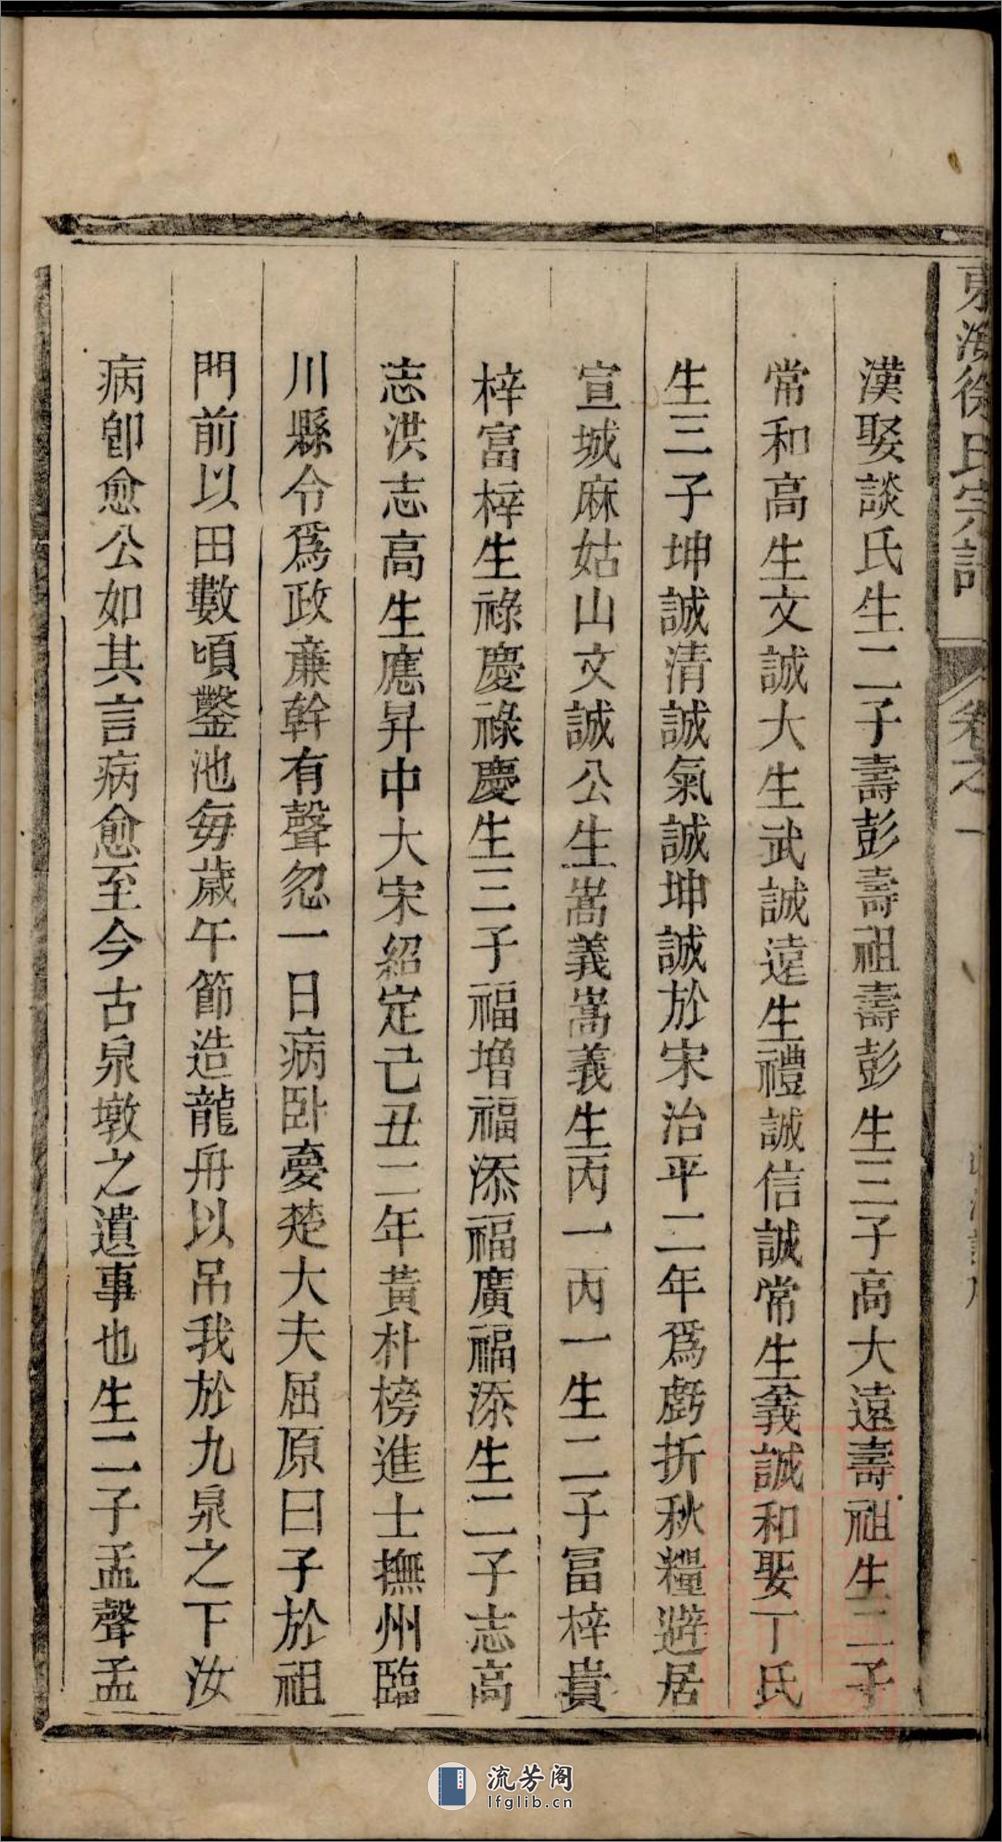 東海徐氏宗譜
卷之一
漢娶談氏生二子壽彭壽祖壽彭生三子高大遠壽祖生二子
常和高生文誠大生武誠遠生禮誠信誠常生義誠和娶丁氏
生三子坤誠清誠氣誠坤誠於宋治平二年爲虧折秋糧避居
宣城麻姑山文誠公生嵩義嵩義生丙一丙一生二子冨梓貴
梓富梓生祿慶祿慶生三子福增福添福廣福添生二子志高
志洪志高生應昇中大宋紹定己丑二年黃朴榜進士撫州臨
川縣令爲政亷幹有聲忽一日病卧夢楚大夫屈原曰子於祖
門前以田數頃鑿池每歲午節造龍舟以吊我於九泉之下汝
病卽愈公如其言病愈至今古泉墩之遺事也生二子孟聲孟
流芳阁
lfglib.cn